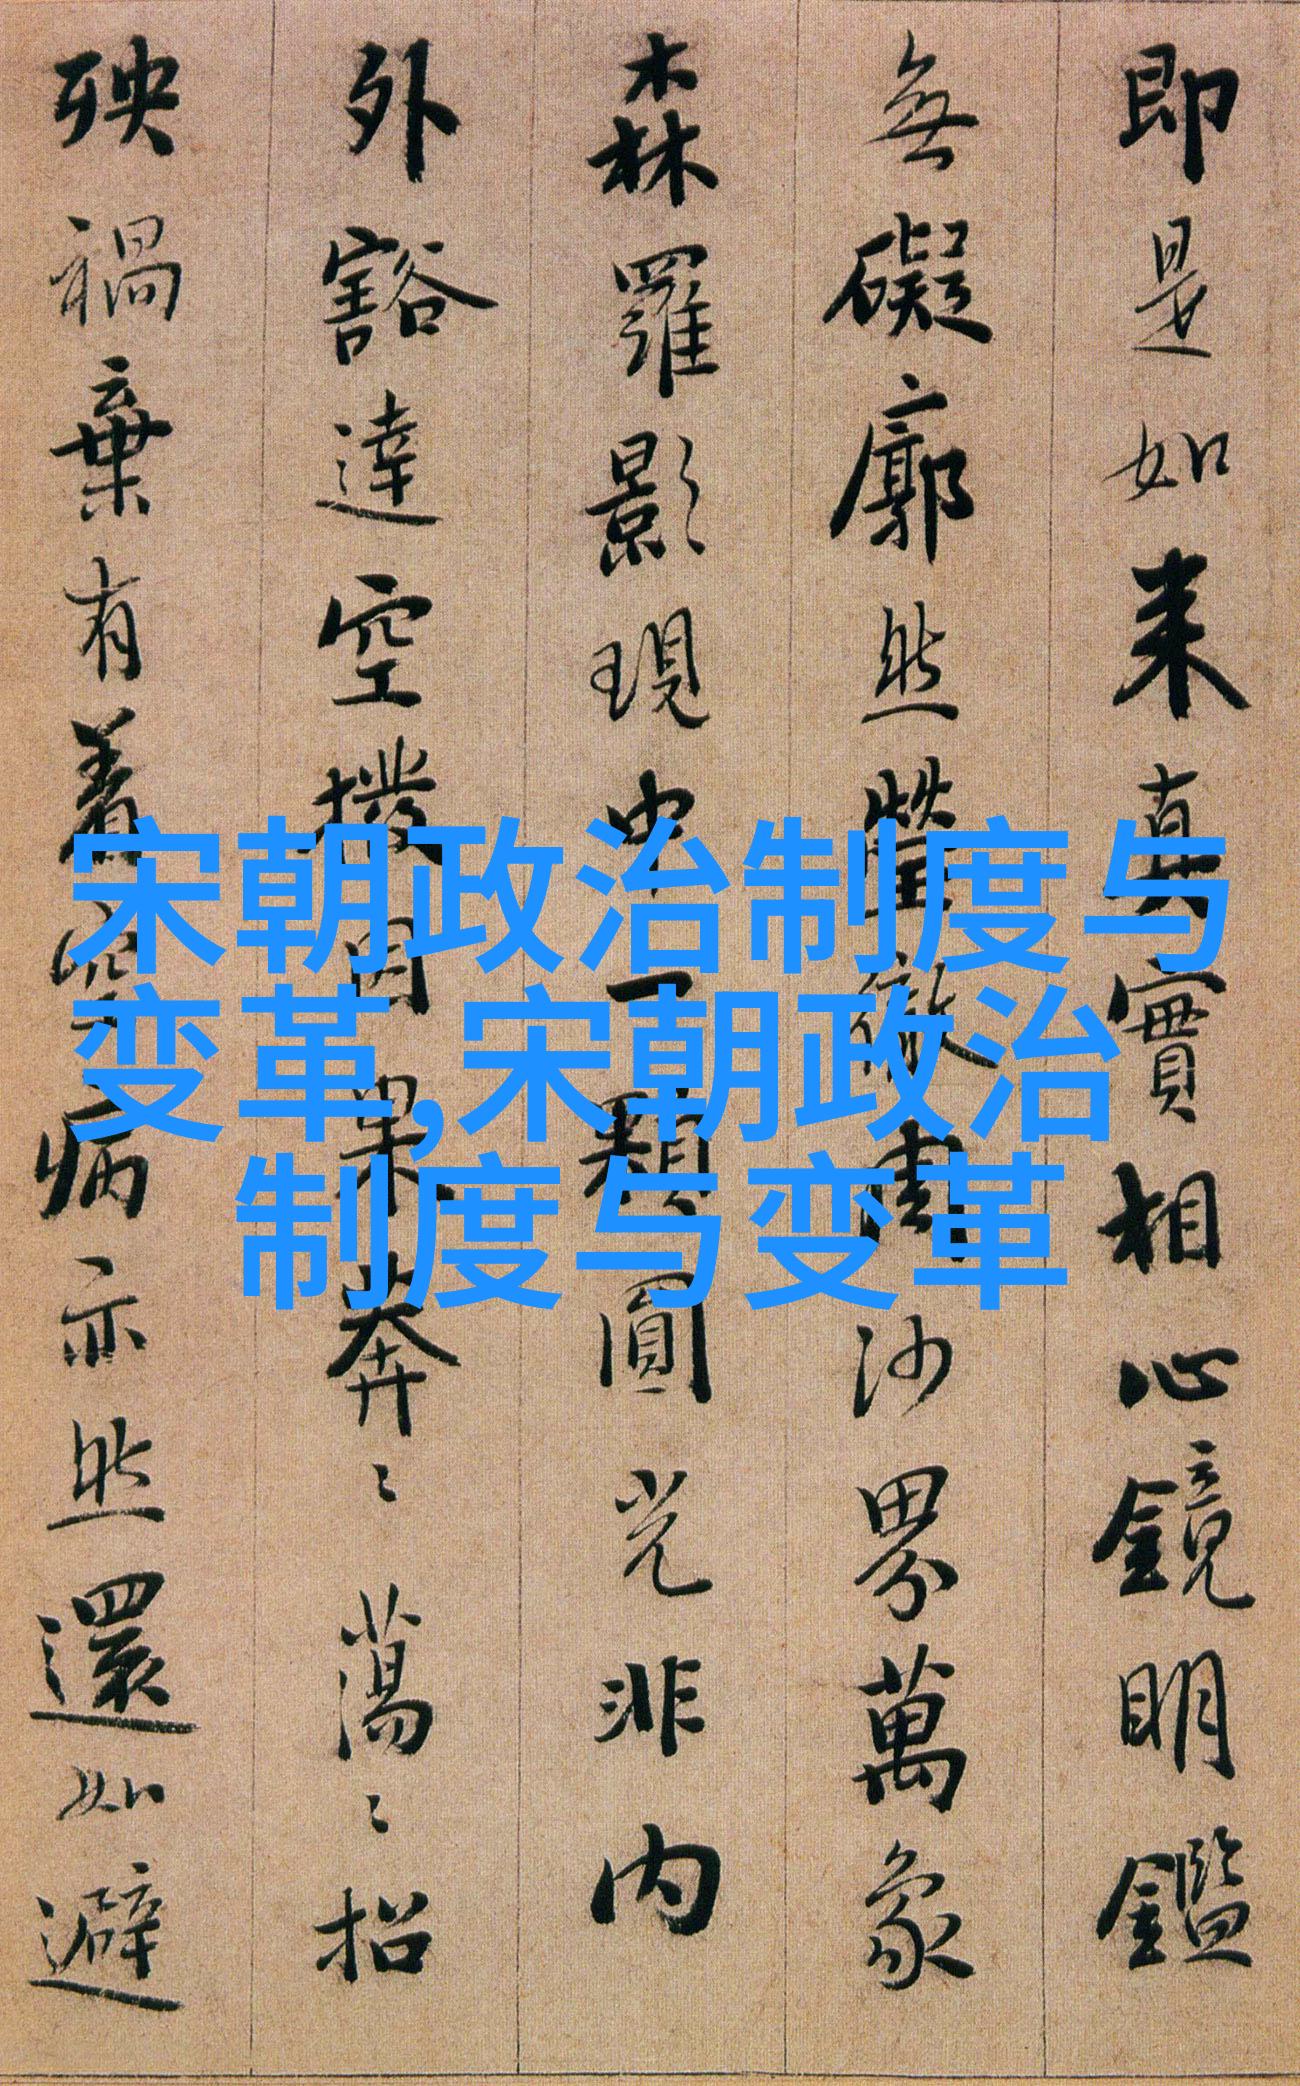 即是如来真實相心鏡明鑑
無礙廓然瑩徹周沙界萬象
森羅影現中一顆圓光非内
外豁達空撥因果莽〻蕩〻招
殃禍棄有著空病亦然還如避
宋朝政治制度与
变革,宋朝政治
制度与变革